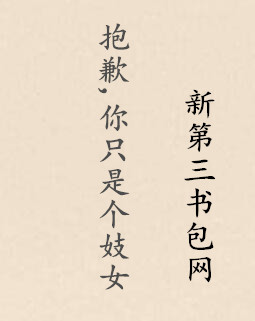 新第三书包网
抱歉,你只是个妓女